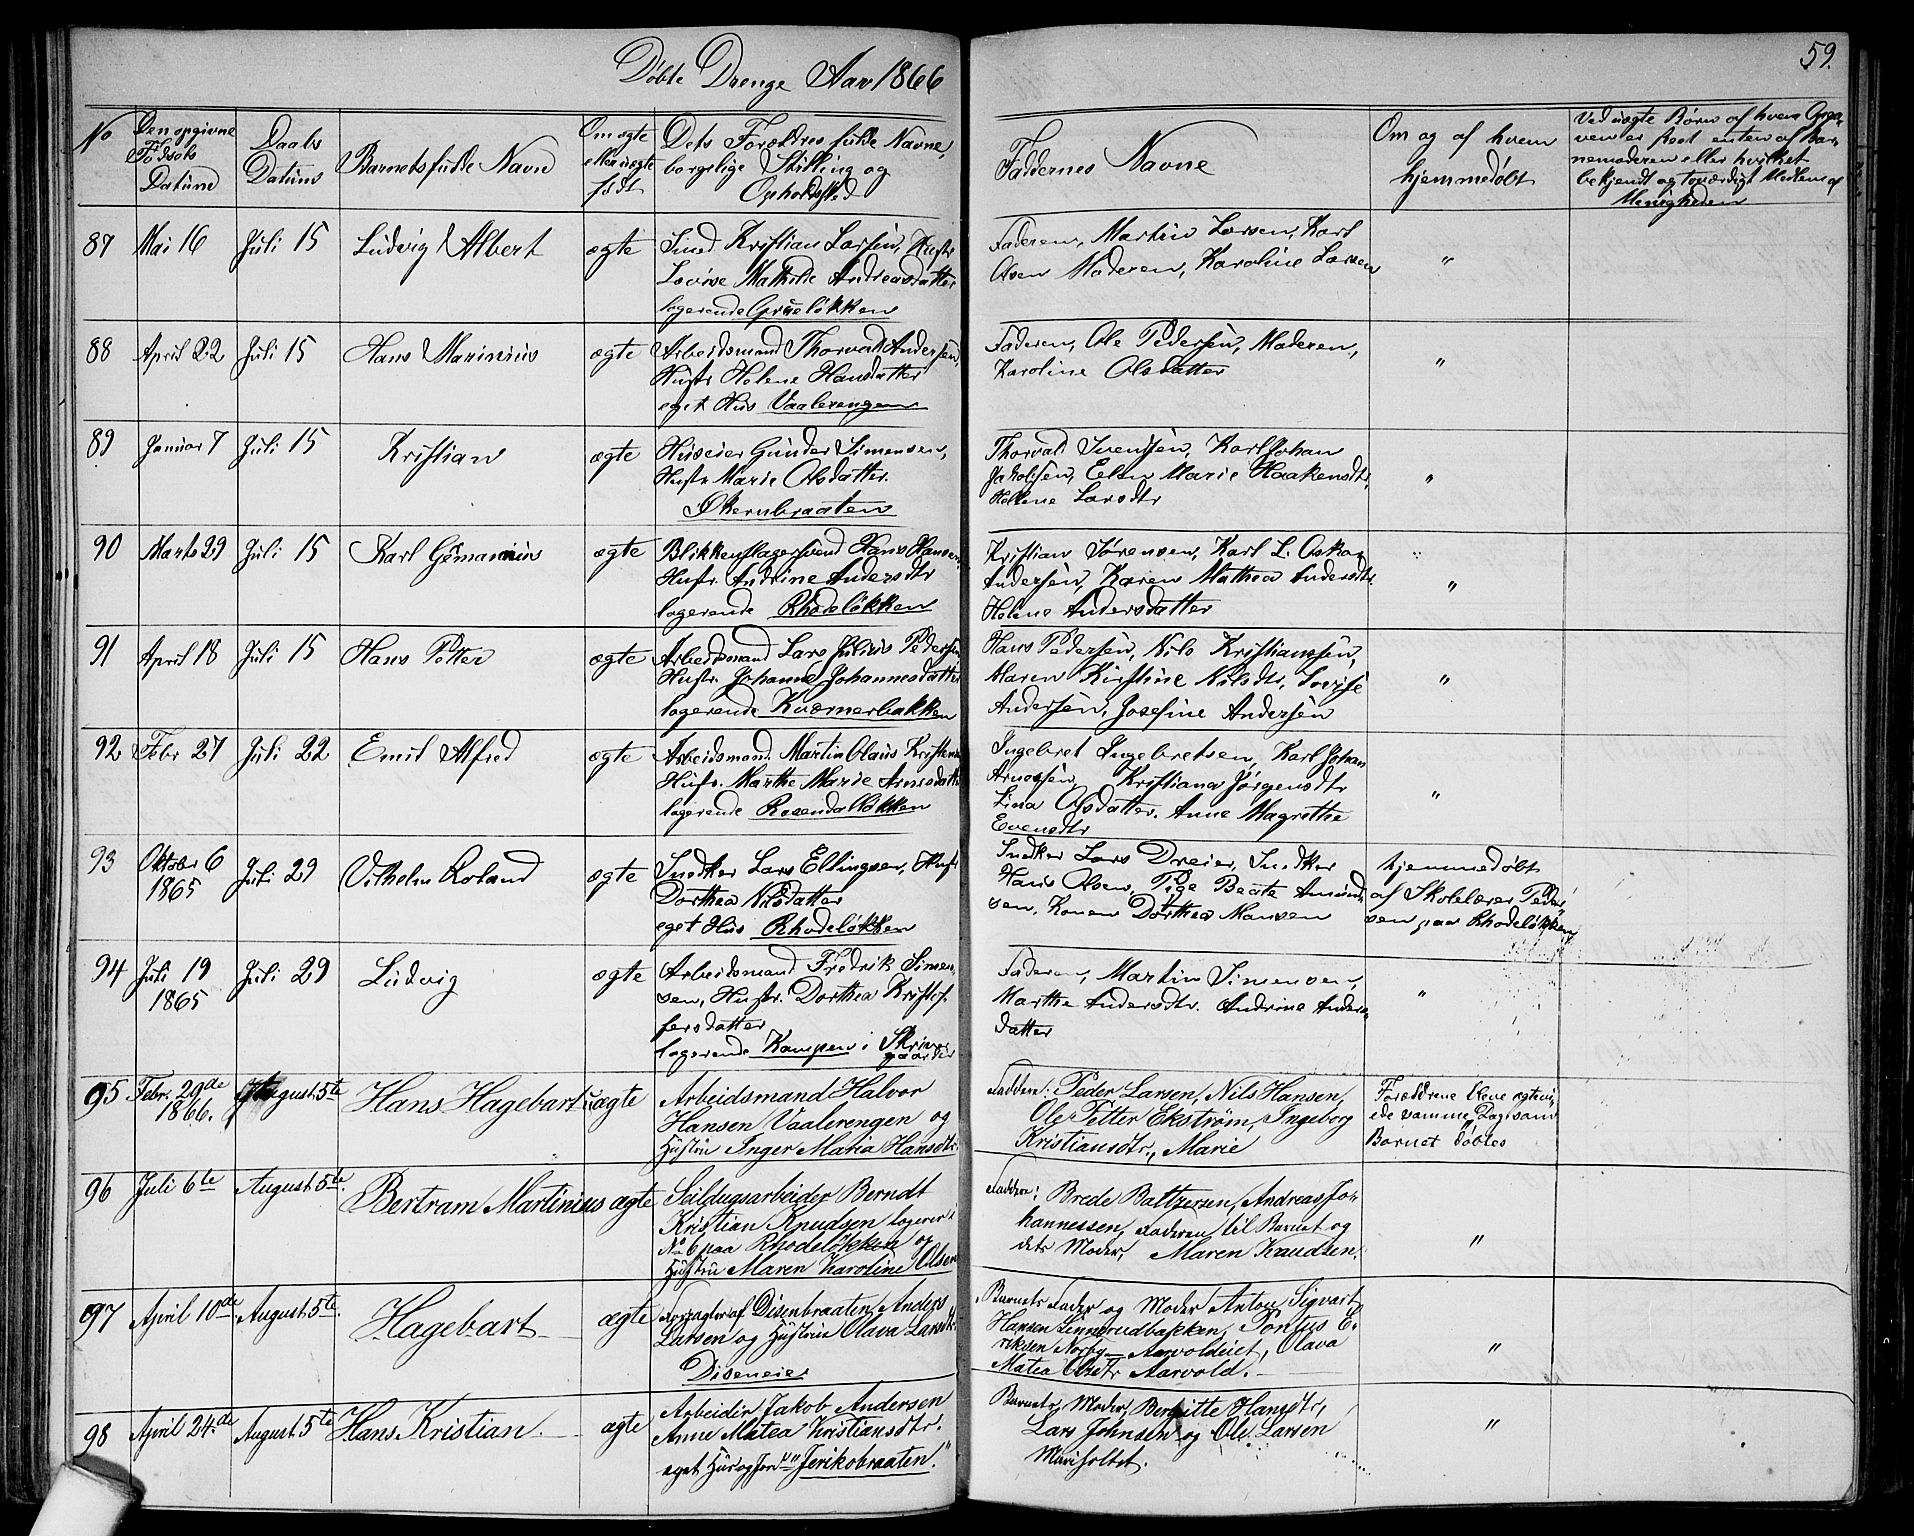 59.
Döbte Drenge Aar 1866
No
Den opgivne Födsels Datum
Daabs Datum
Barnets fulde Navn
Om ægte eller uægte födt
Dets Forældres fulde Navne, borgelige Stilling og Opholdssted
Faddernes Navne
Om og af hvem hjemmedöbt
Ved uægte Börn af hvem Opga-
ven er skeet enten af Bar-
nemoderen eller hvilket
bekjendt og troværdigt Medlem af
Menigheden
87 Mai 16 Juli 15 Ludvig Albert ægte Smed Kristian Larsen, Hustr
Lovise Mathilde Andreasdatter
logerende Grüeløkken
Faderen, Martin Larsen, Karl
Olsen Moderen, Karoline Larsen "
88 April 22 Juli 15 Hans Marinius ægte Arbeidsmand Thorvald Andersen,
Hustr Helene Hansdatter
eget Hus Vaalerengen
Faderen, Ole Pedersen, Moderen,
Karoline Olsdatter "
89 Januar 7 Juli 15 Kristian ægte Huseier Gunder Simensen,
Hustr Marie Olsdatter.
Økernbraaten
Thorvald Svensen, Karl Johan
Jakobsen, Elen Marie Haakensdtr,
Hellene Larsdtr "
90 Marts 29 Juli 15 Karl ægte Blikkenslagersvend Hans Hansen,
Hustr. Andrine Andersdtr
logerende Rhodeløkken
Kristian Sörensen, Karl L. Oskar
Andersen, Karen Mathea Andersdtr
Helene Andersdatter "
91 April 18 Juli 15 Hans Petter ægte Arbeidsmand Lars Julius Pedersen
Hustr. Johanne Johannesdatter
logerende Kværnerbakken
Hans Pedersen, Nils Kristianssen,
Maren Kirstine Nilsdtr, Lovise
Andersen, Josefine Andersen "
92 Febr 27 Juli 22 Emil Alfred ægte Arbeidsmand Martin Olaus Kristensen
Hustr. Marthe Marie Arnesdatter
logerende Rosendalløkken
Ingebret Ingebretsen, Karl Johan
Arnessen, Kristiana Jörgensdtr
Lina Olsdatter. Anne Magrethe
Evensdtr "
93 Oktober 6
1865 Juli 29 Vilhelm Roland ægte Snedker Lars Ellingsen, Hustr
Dorthea Nilsdatter
eget Hus Rhodeløkken
Snedker Lars Dreier, Snedker
Hans Olsen, Pige Beate Amund-
sen, Konen Dorthea Hansen
hjemmedöbt
af Skolelærer Peder
sen paa Rhodeløkken
94 Juli 19
1865 Juli 29 Ludvig ægte Arbeidsmand Fredrik Simen-
sen, Hustr. Dorthea Kristof-
fersdatter
logerende Kampen i Skriver
gaarden
Faderen, Martin Simensen,
Marthe Andersdtr. Andrine Anders-
datter "
95 Febr. 29de
1866. August 5te Hans Hagebart uægte Arbeidsmand Halvor
Hansen Vaalerengen og
Hustru Inger Maria Hansdtr.
Faddere: Peder Larsen, Nils Hansen,
Ole Petter Ekström, Ingeborg
Kristiansdtr., Marie
Forældrene bleve ægtevi-
ede samme Dag som
Barnet döbtes
96 Juli 6te August 5te. Bertram Martinius ægte Seildugsarbeider Berndt
Kristian Knudsen logerer i
No 6 paa Rhodeløkken og
Hustru Maren Karoline Olsen
Faddere: Brede Baltzersen, Andreas Jo-
hannessen, Faderen til Barnet og
dets Moder, Maren Knudsen. "
97 April 10de August 5te. Hagebart ægte Forpagter af Disenbraaten Anders
Larsen og Hustru Olava Larsdtr
Diseneier
Barnets Fader og Moder Anton Sigvart
Hansen Linnerudbakken, Pontus E-
riksen Norby - Aarvoldeiet, Olava
Matea Olsdtr Aarvold. "
98 April 24de August 5te Hans Kristian. ægte Arbeider Jakob Andersen
Anne Matea Kristiansdtr.
eget Hus og Jord "Jerikobraaten."
Barnets Moder, Bergitte Hansdtr,
Lars Johnsen og Ole Larsen
Mariholtet. "